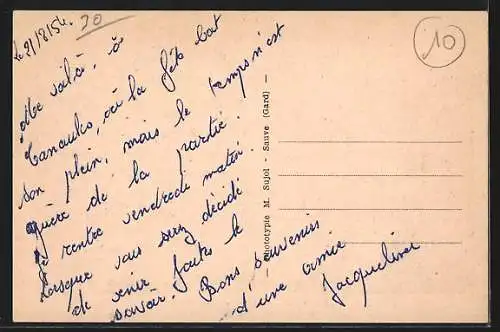 Le 21/8/54.
30
10
Me voilà, à
Canaules, où la fête bat
son plein, mais le temps n'est
guère de la partie.
Je rentre vendredi matin.
Lorsque vous serez décidé
de venir, faites le
savoir. Bons souvenirs
d'une amie
Jacqueline
Phototypie M. Sujol - Sauve (Gard) -